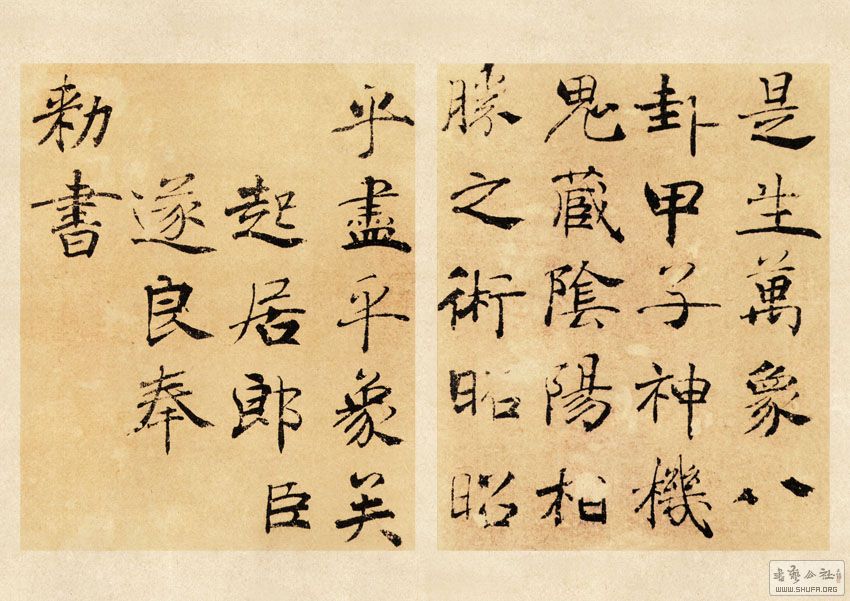 是生萬象八
卦甲子神機
鬼藏陰陽相
勝之術昭昭
乎盡乎象矣
起居郎臣
遂良奉
勅書
書藝公社
WWW.SHUFA.ORG